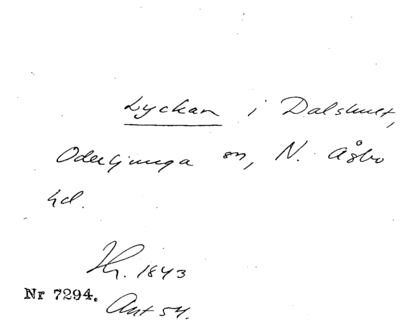 Lyckan i Dalshult,
Oderljunga sn, N. Åsbo
hd.
Hr. 1843
Nr 7294.
Ant 54.